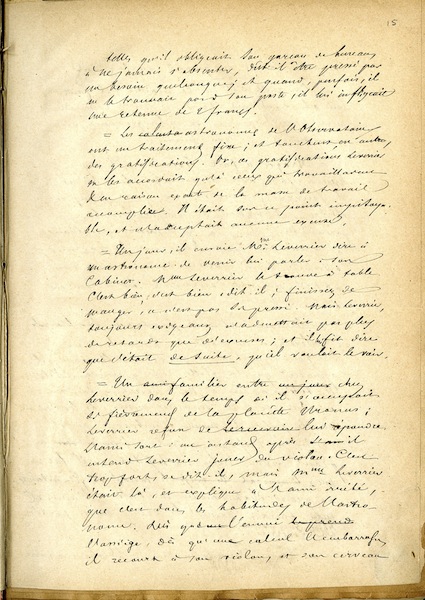 15
telles qu'il obligeait son garçon de bureau
à ne jamais s'absenter, dût-il être pressé par
un besoin quelconque; et quand, parfois, il
ne le trouvait pas à son poste, il lui infligeait
une retenue de 2 francs.
= Les astronomes de l'Observatoire
ont un traitement fixe; et touchent en outre
des gratifications. Or, ces gratifications Leverrier
ne les accordait qu'à ceux qui travaillaient
en raison de la masse de travail
accomplie. Il était sur ce point impitoya-
ble, et n'acceptait aucune excuse.
= Un jour, il envoie Mme Leverrier dire à
un astronome de venir lui parler à son
Cabinet. Mme Leverrier le trouve à table
C'est bien, c'est bien, dit-il; finissez de
manger, ce n'est pas si pressé. Mais Leverrier,
toujours exigeant n'admettait pas plus
de retards que d'excuses; et il fit dire
que c'était de suite, qu'il voulait le voir.
= Un ami familier entre un jour chez
Leverrier dans le temps où il s'occupait
si fiévreusement de la planète Uranus;
Leverrier refuse de le recevoir
L'ami sort; un instant après il
entend Leverrier jouer du violon. C'est
trop fort, se dit-il, mais Mme Leverrier
était là, et explique à l'ami irrité,
que c'est dans les habitudes de l'astro-
nome. Dès que l'ennui
l'assiège, dès qu'un calcul l'embarrasse,
il recourt à son violon, et son cerveau